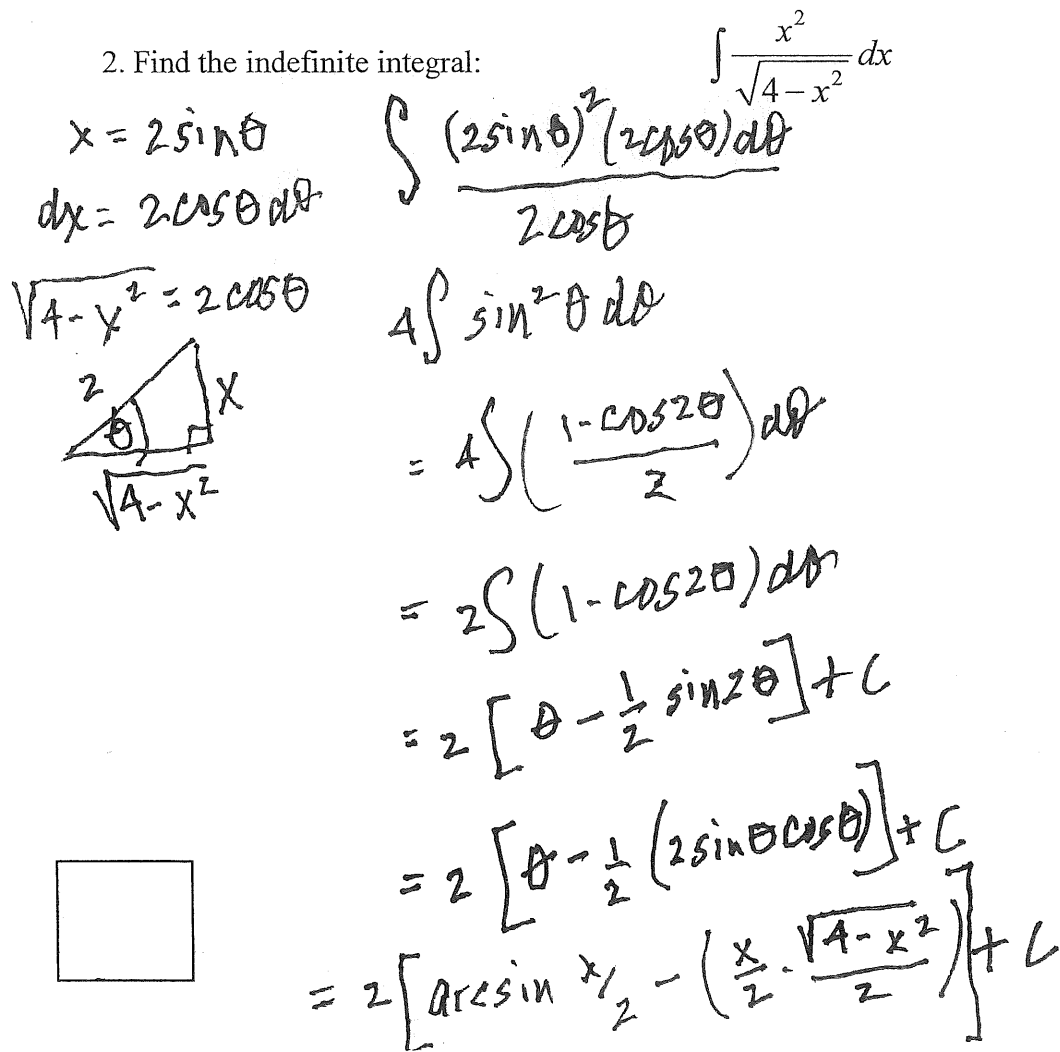 2. Find the indefinite integral: ∫ x²/√(4−x²) dx
x = 2sinθ
dx = 2cosθdθ
√(4-x²) = 2cosθ
2
θ
x
√(4-x²)
∫ (2sinθ)²(2cosθ)dθ / 2cosθ
4∫ sin²θ dθ
= 4∫((1-cos2θ)/2)dθ
= 2∫(1-cos2θ)dθ
= 2[θ - 1/2 sin2θ] + C
= 2[θ - 1/2 (2sinθcosθ)] + C
= 2[arcsin x/2 - (x/2 · √(4-x²)/2)] + C